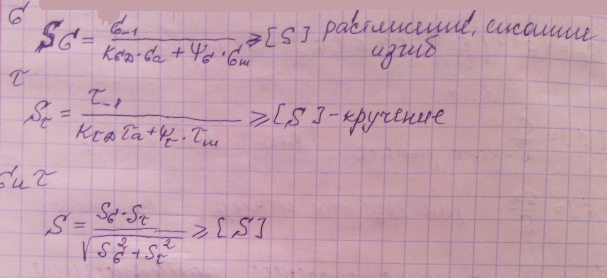 σ
S_σ = σ_-1 / (K_σД · σ_a + ψ_σ · σ_m) ≥ [S] растяжение, сжатие
изгиб
τ
S_τ = τ_-1 / (K_τД τ_a + ψ_τ · τ_m) ≥ [S] - кручение
σ и τ
S = S_σ · S_τ / √(S_σ^2 + S_τ^2) ≥ [S]